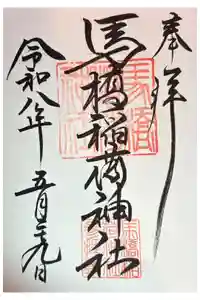 奉拝
馬橋稲荷神社
令和八年五月二九日